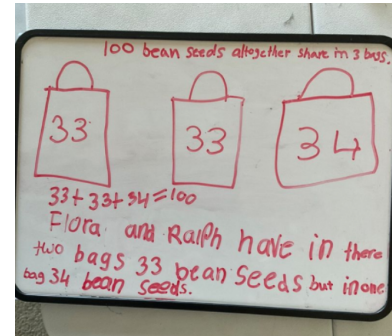 100 bean seeds altogether share in 3 bags.
33 33 34
33+33+34=100
Flora and Ralph have in there
two bags 33 bean seeds but in one
bag 34 bean seeds.